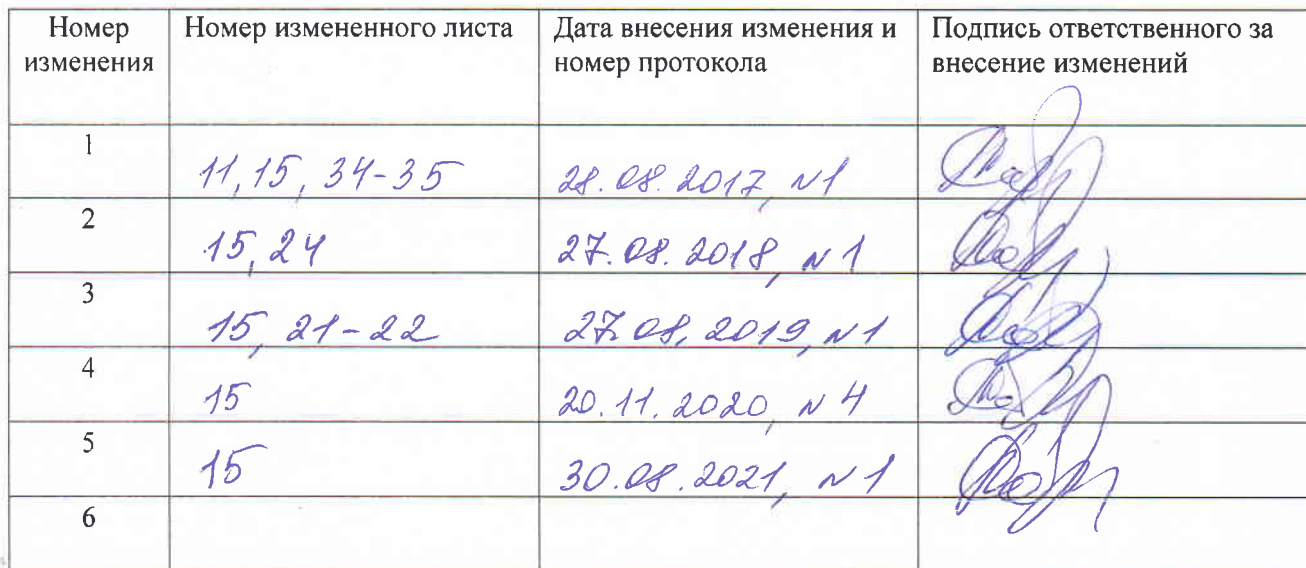 Номер изменения | Номер измененного листа | Дата внесения изменения и номер протокола | Подпись ответственного за внесение изменений
1 | 11, 15, 34-35 | 28.08.2017, №1
2 | 15, 24 | 27.08.2018, №1
3 | 15, 21-22 | 27.08.2019, №1
4 | 15 | 20.11.2020, №4
5 | 15 | 30.08.2021, №1
6